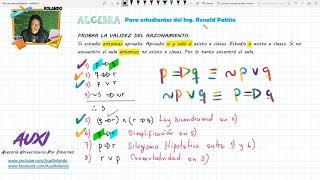 ROLANDO
ALGEBRA Para estudiantes del Ing. Renold Patiño
PROBAR LA VALIDEZ DEL RAZONAMIENTO:
Si estudio entonces apruebo. Apruebo si y solo si asisto a clases. Estudio o asisto a clases. Si no
encuentro el aula entonces no asisto a clases. Por lo tanto encontré el aula.
1)
2)
3)
4)
∴ s
5) (q → r) ∧ (r → q) Ley bicondicional en 2)
6) q → r Simplificación en 5)
7) p → r Silogismo Hipotético entre 1) y 6)
8) r ∨ p Conmutatividad en 3)
p → q ≡ ~p ∨ q
~p ∨ q ≡ p → q
AUXI
Asesoría Universitaria Por Internet
www.youtube.com/AuxiRolando
www.facebook.com/AuxiRolando